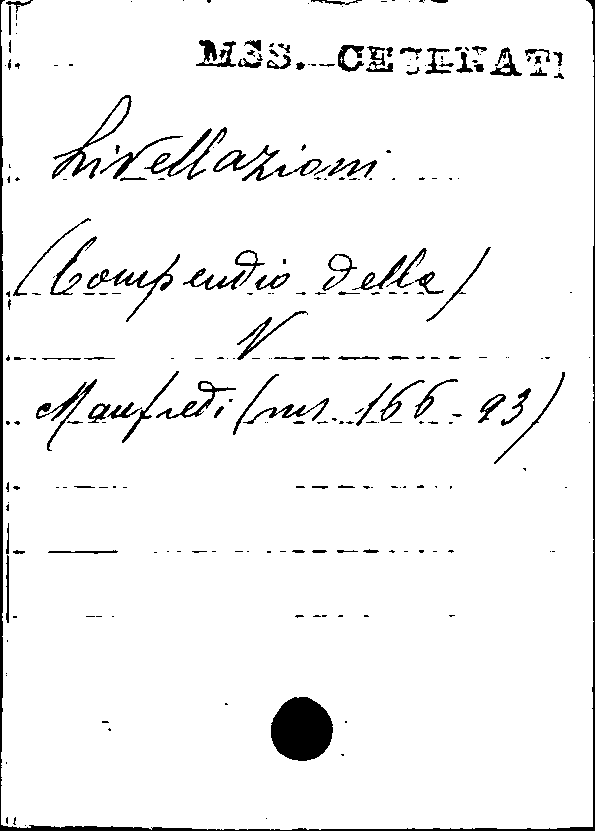 MSS. CESENATI
Livellazioni
(Compendio della)
V
Manfredi (ms. 166-93)